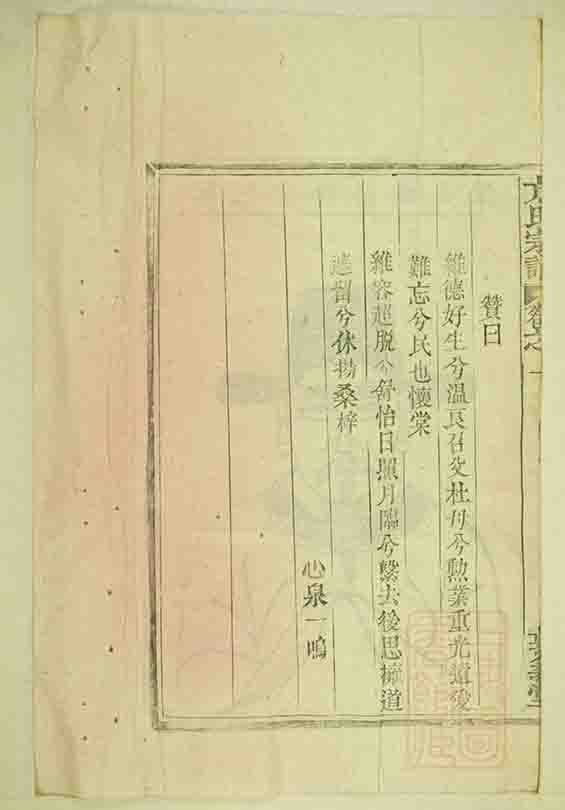 氏宗譜 卷之一
贊曰
維德好生兮溫良召父杜母兮勲業重光遺後
難忘兮民也懷棠
維容超脫兮舒怡日照月臨兮繫去後思擁道
遮留兮休揚桑梓
心泉一鳴